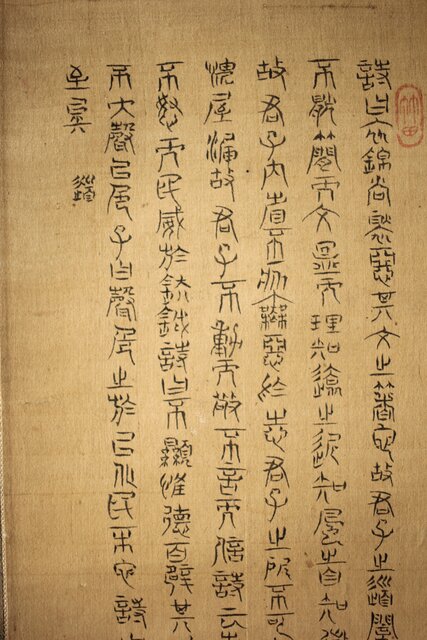 詩曰衣錦尚絅惡其文之著也故君子之道闇
不厭簡而文溫而理知遠之近知風之自知微
故君子內省不疚無惡於志君子之所不可
愧屋漏故君子不動而敬不言而信詩云奏
不怒而民威於鈇鉞詩曰不顯惟德百辟其
不大聲以色子曰聲色之於以化民末也詩曰
至矣